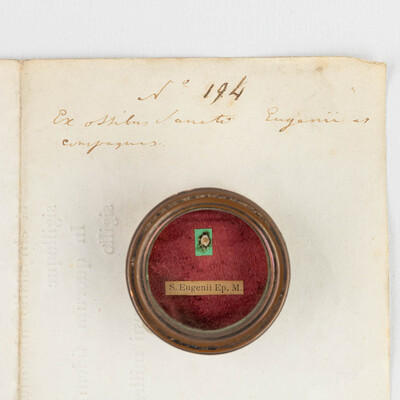 No 194
Ex ossibus Sancti Eugenii et
compagnus.
S. Eugenii Ep. M.